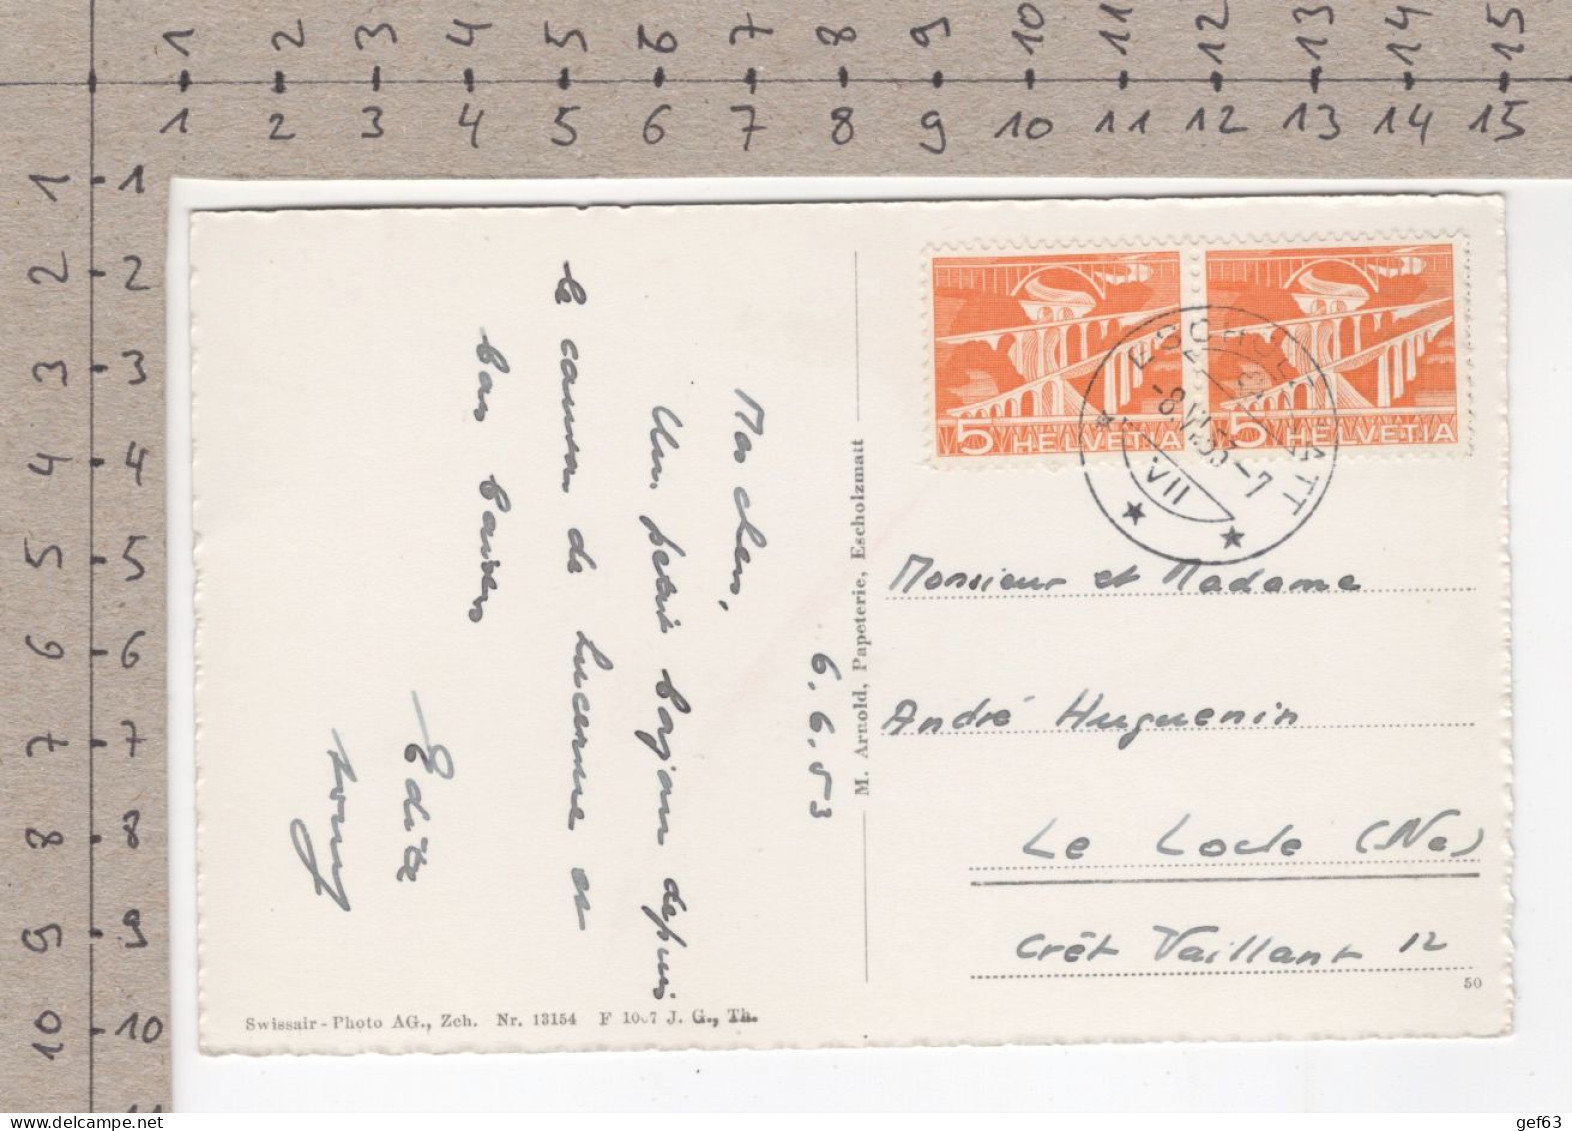 1 2 3 4 5 6 7 8 9 10 11 12 13 14 15
1 2 3 4 5 6 7 8 9 10 11 12 13 14 15
1 1
2 2
3 3
4 4
5 5
6 6
7 7
8 8
9 9
10 10
11
6.6.53
Mes chers,
Un petit bonjour depuis
le canton de Lucerne et
bons baisers
Edith
M. Arnold, Papeterie, Escholzmatt
5 HELVETIA
5 HELVETIA
ESCHOLZMATT
-8.VI.53-7
VII
Monsieur et Madame
André Huguenin
Le Locle (Ne)
Crêt Vaillant 12
50
Swissair-Photo AG., Zch. Nr. 13154 F J. G., Th.
gef63